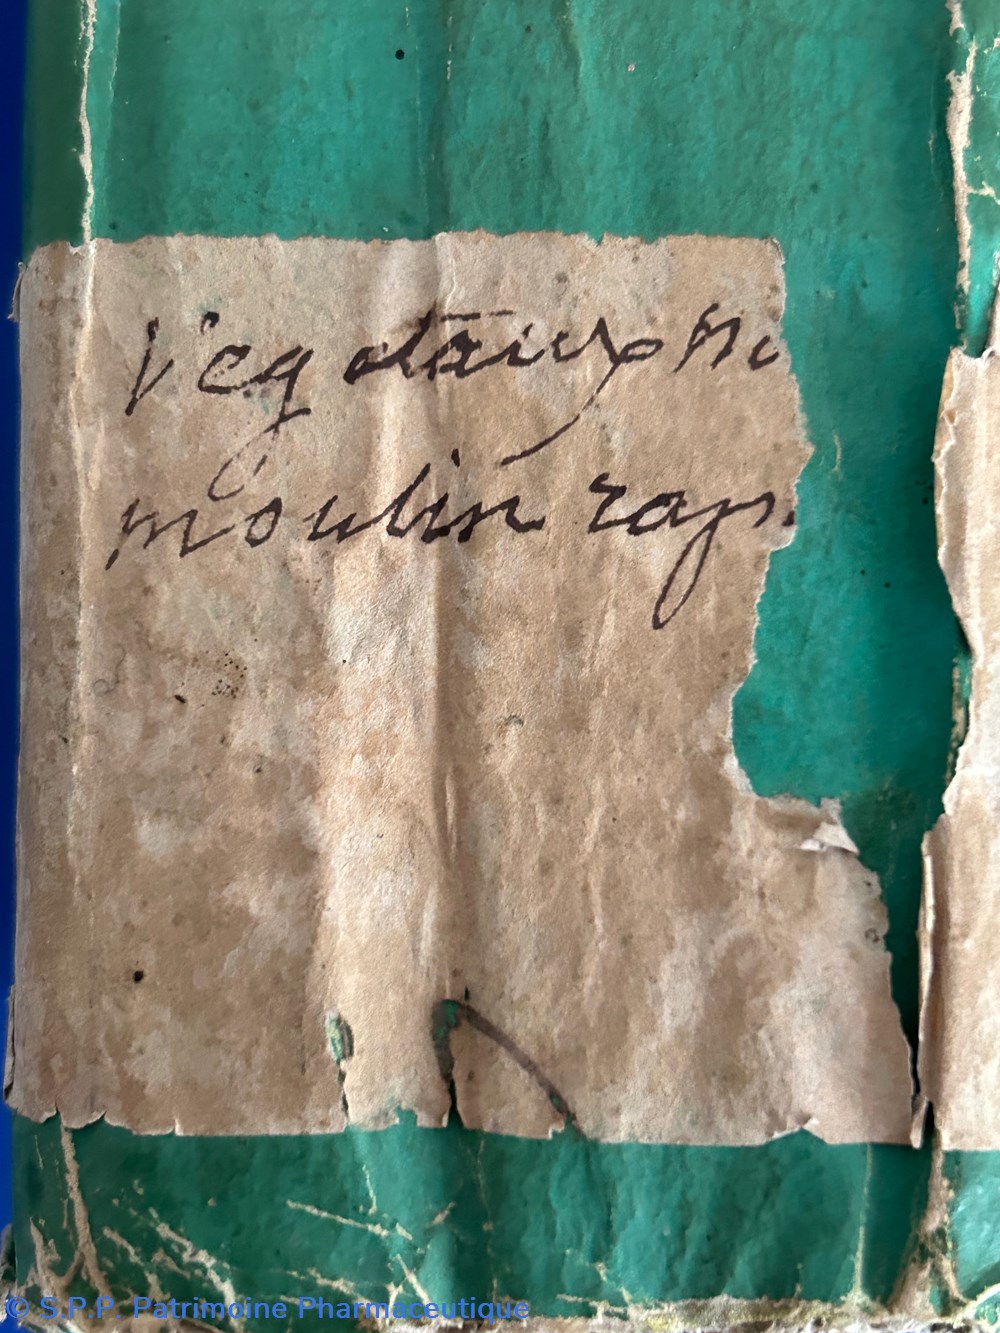 Vegetaux
moulin
© S.P.P. Patrimoine Pharmaceutique